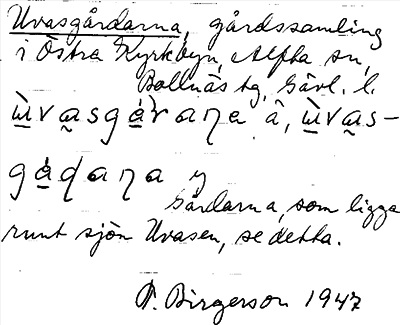 Uvasgårdarna, gårdssamling
i Östra Kyrkbyn, Alfta sn,
Bollnäs tg, Gävl. l.
ùvasgárana â, ùvas-
gáɖaɳa y
Gårdarna, som ligga
runt sjön Uvasen, se detta.
P. Birgerson 1947